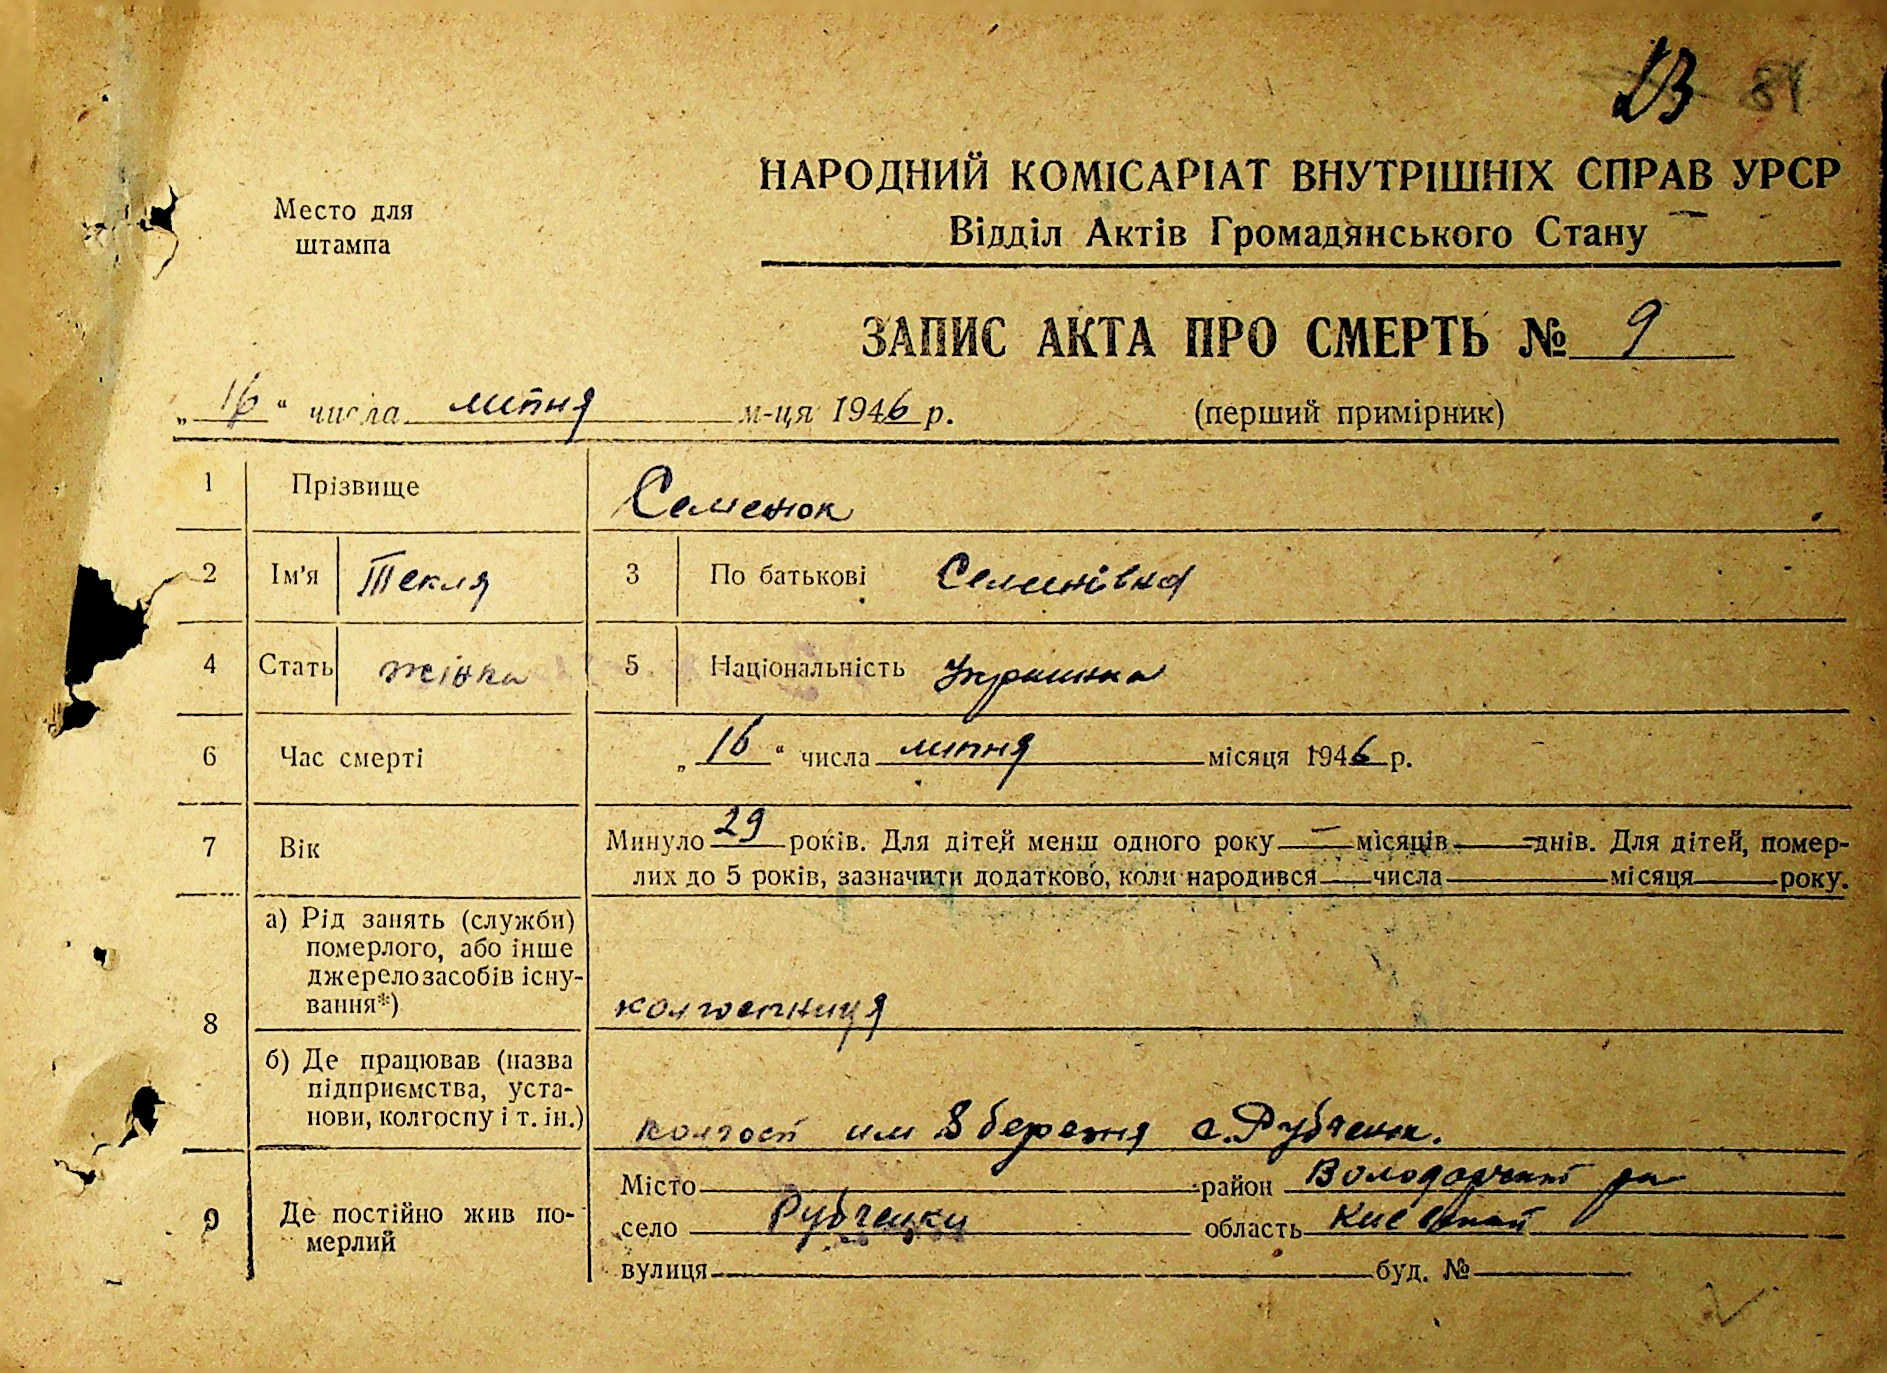 23 81
НАРОДНИЙ КОМІСАРІАТ ВНУТРІШНІХ СПРАВ УРСР
Место для
штампа
Відділ Актів Громадянського Стану
ЗАПИС АКТА ПРО СМЕРТЬ № 9
„16“ числа липня м-ця 1946 р. (перший примірник)
1 Прізвище Семенюк
2 Ім'я Текля 3 По батькові Семенівна
4 Стать жінка 5 Національність Українка
6 Час смерті „16“ числа липня місяця 1946 р.
7 Вік Минуло 29 років. Для дітей менш одного року — місяців — днів. Для дітей, помер-
лих до 5 років, зазначити додатково, коли народився числа місяця року.
8 а) Рід занять (служби)
померлого, або інше
джерело засобів існу-
вання*) колгоспниця
б) Де працював (назва
підприємства, уста-
нови, колгоспу і т. ін.) колгосп им 8 березня с. Рубченк.
9 Де постійно жив по-
мерлий
Місто район Володарский р-н
село Рубченки область Киевский
вулиця буд. №